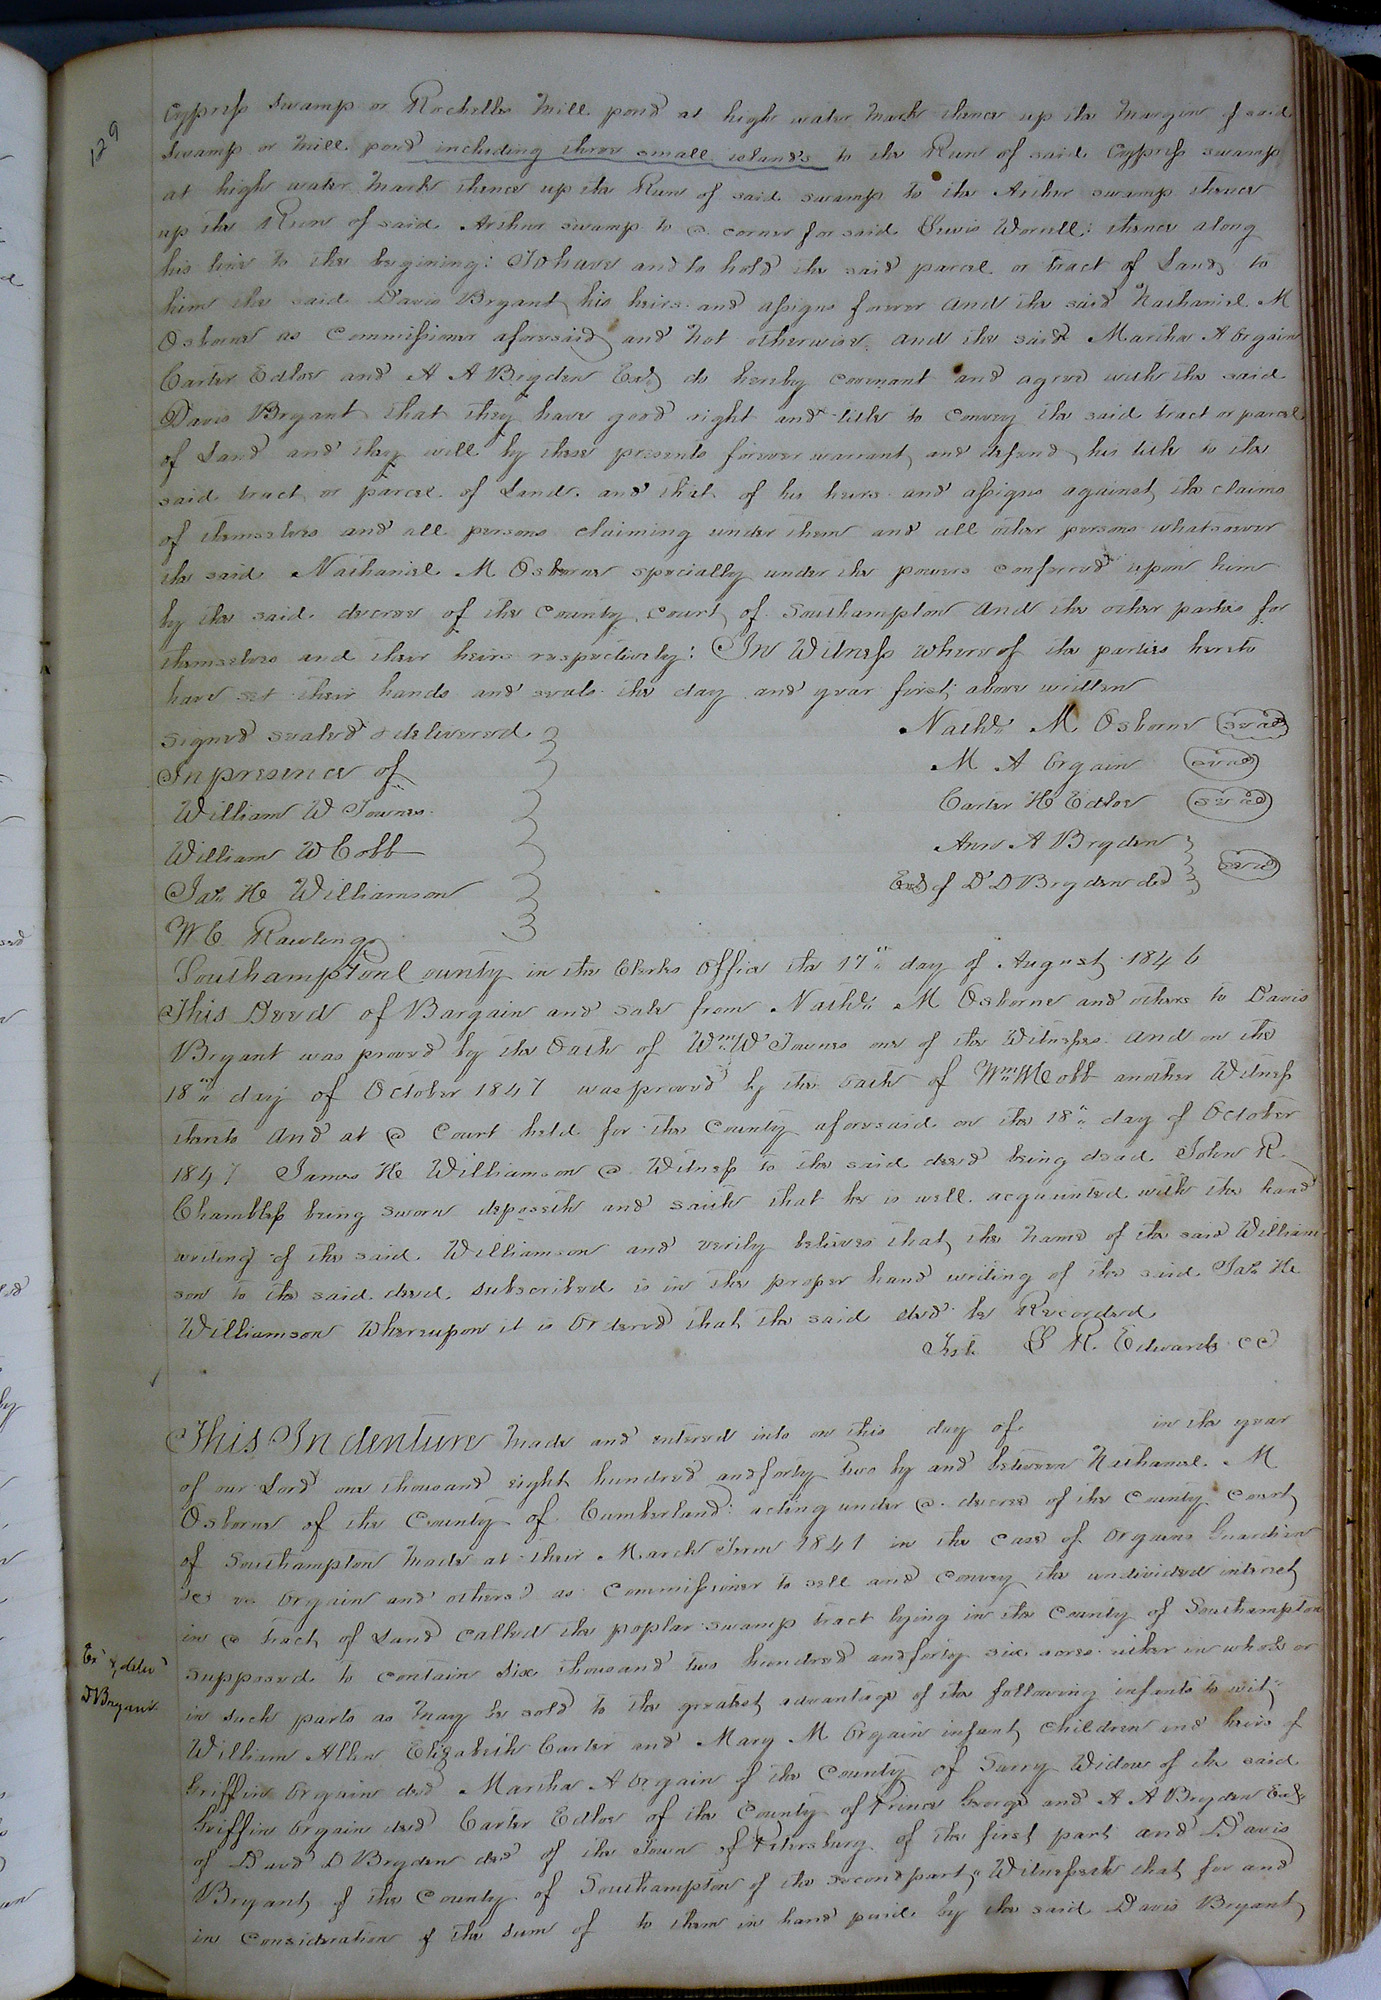 129
Cypress Swamp or Rochelles Mill pond at high water Mark thence up the Margin of said
Swamp or Mill pond including three small islands to the Run of said Cypress swamp
at high water Mark thence up the Run of said swamp to the Arthur swamp thence
up the Run of said Arthur swamp to a corner for said Lewis Worrell: thence along
his line to the begining: To have and to hold the said parcel or tract of Land, to
him the said Davis Bryant his heirs and assigns forever and the said Nathaniel M
Osborne as Commissioner aforesaid and not otherwise and the said Martha A Orgain
Carter Edloe and A A Bryden Exr, do hereby covenant and agree with the said
Davis Bryant that they have good right and title to convey the said tract or parcel
of Land and they will by these presents forever warrant, and defend, his title to the
said tract or parcel of Land and that of his heirs and assigns against the claims
of themselves and all persons claiming under them and all other persons whatsoever
the said Nathaniel M Osborne specially under the powers conferred upon him
by the said decree of the County Court of Southampton and the other parties for
themselves and their heirs respectively: In Witness whereof the parties hereto
have set their hands and seals the day and year first above written
signed sealed & delivered Nathl. M Osborne (seal)
In presence of M A Orgain (seal)
William W Townes Carter H Edloe (seal)
William W Cobb Ann A Bryden
Jas. H Williamson Exr of D D Bryden decd (seal)
W C Rawlings
Southampton County in the Clerks Office the 17th day of August 1846
This Deed of Bargain and sale from Nathl. M Osborne and others to Davis
Bryant was proved by the Oath of Wm W Townes one of the Witnesses and on the
18th day of October 1847 was proved by the oath of Wm W Cobb another Witness
thereto And at a Court held for the County aforesaid on the 18th day of October
1847 James H Williamson a Witness to the said deed being dead John R
Chambless being sworn deposeth and saith that he is well acquainted with the hand
writing of the said Williamson and verily believes that the name of the said William
son to the said deed subscribed is in the proper hand writing of the said Jas H
Williamson Whereupon it is Ordered that the said deed be Recorded
Test R. Edwards CC
This Indenture Made and entered into on this day of in the year
of our Lord one thousand eight hundred and forty two by and between Nathaniel M
Osborne of the County of Cumberland: acting under a decree of the County Court
of Southampton Made at their March Term 1841 in the case of Orgains Guardian
&c vs Orgain and others as Commissioner to sell and convey the undivided interest
in a tract of Land called the poplar swamp tract lying in the County of Southampton
supposed to contain six thousand two hundred and forty six acres either in whole or
in such parts as may be sold to the greatest advantage of the following infants to wit,
Ex & deld
D Bryant
William Allen Elizabeth Carter and Mary M Orgain infant children and heirs of
Griffin Orgain decd Martha A Orgain of the County of Surry Widow of the said
Griffin Orgain decd Carter Edloe of the County of Prince George and A A Bryden Exr
of David D Bryden decd of the Town of Petersburg of the first part and Davis
Bryant of the County of Southampton of the second part, Witnesseth that for and
in consideration of the sum of to them in hand paid by the said Davis Bryant